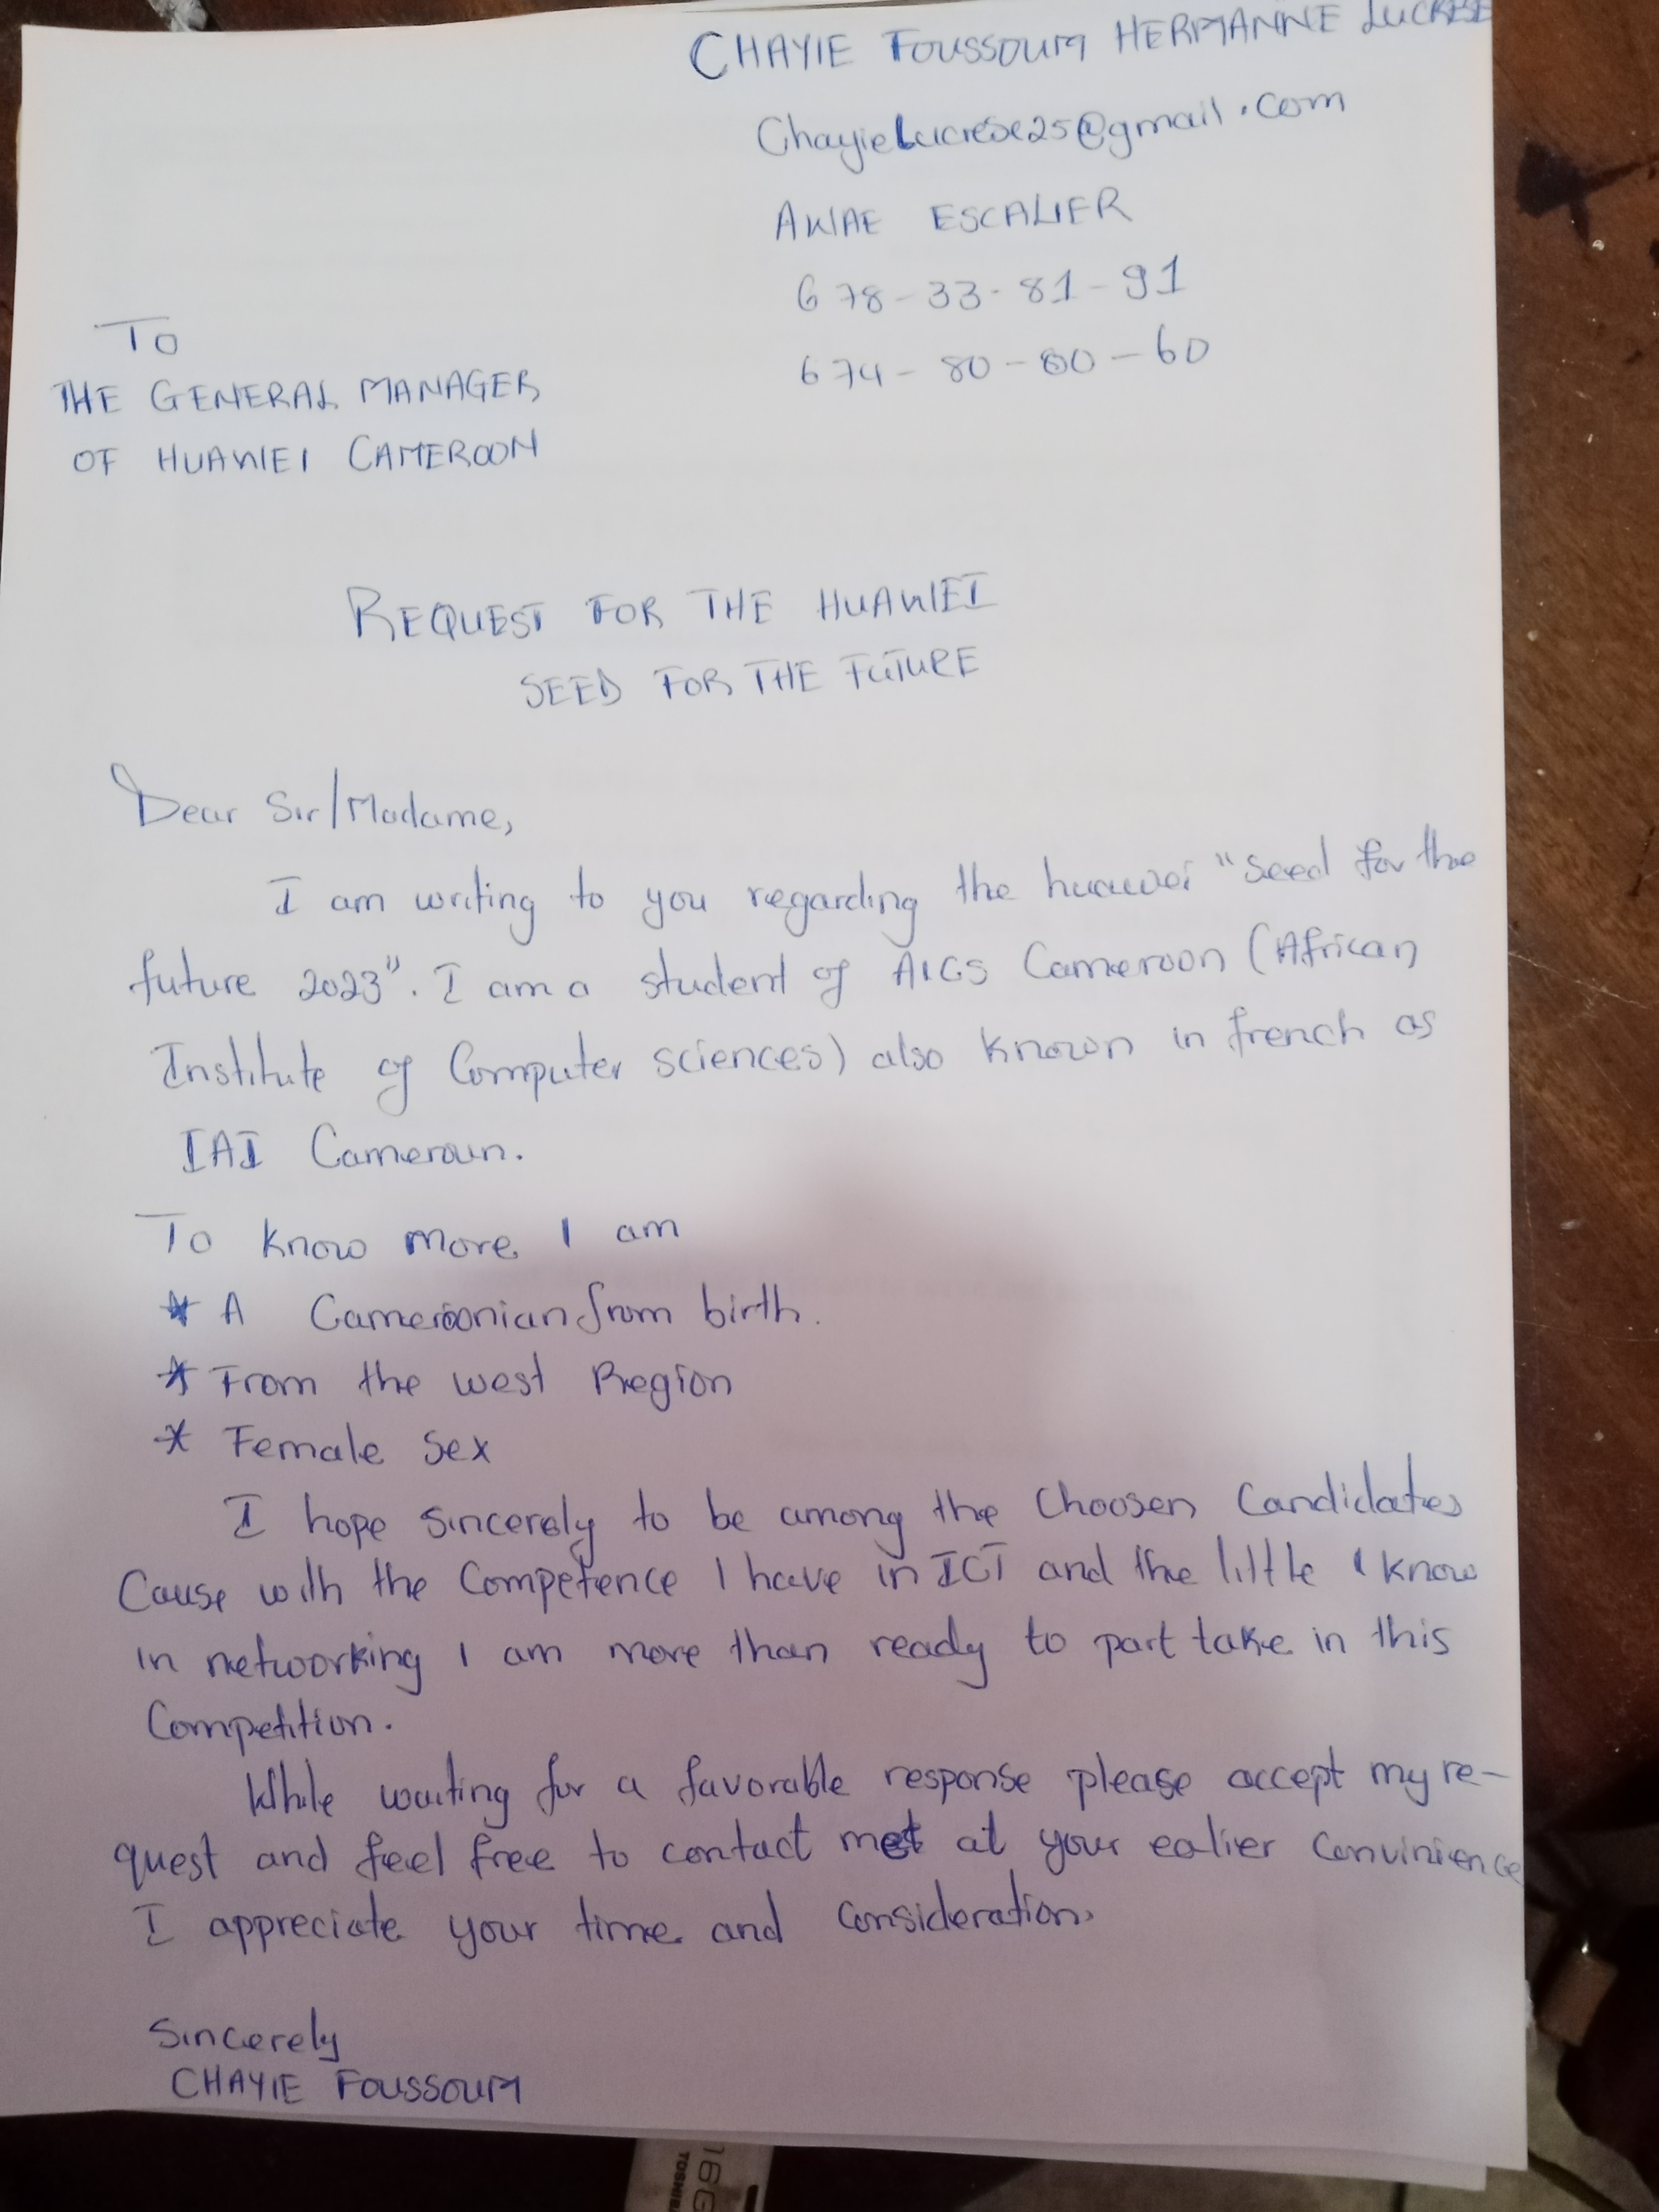 CHAYIE FOUSSOUM HERMANNE LUCRESE
ChayieLucrese25@gmail.com
AWAE ESCALIER
678-33-81-91
674-80-60-60
To
THE GENERAL MANAGER
OF HUAWEI CAMEROON
REQUEST FOR THE HUAWEI
SEED FOR THE FUTURE
Dear Sir/Madame,
I am writing to you regarding the huawei "seed for the
future 2023". I am a student of AICS Cameroon (African
Institute of Computer sciences) also known in french as
IAI Cameroun.
To know more I am
* A Cameroonian from birth.
* From the west Region
* Female sex
I hope sincerely to be among the choosen candidates
Cause with the competence I have in ICT and the little I know
in networking I am more than ready to part take in this
Competition.
While waiting for a favorable response please accept my re-
quest and feel free to contact me at your ealier convinience
I appreciate your time and consideration.
Sincerely
CHAYIE FOUSSOUM
16G
TOSHIBA